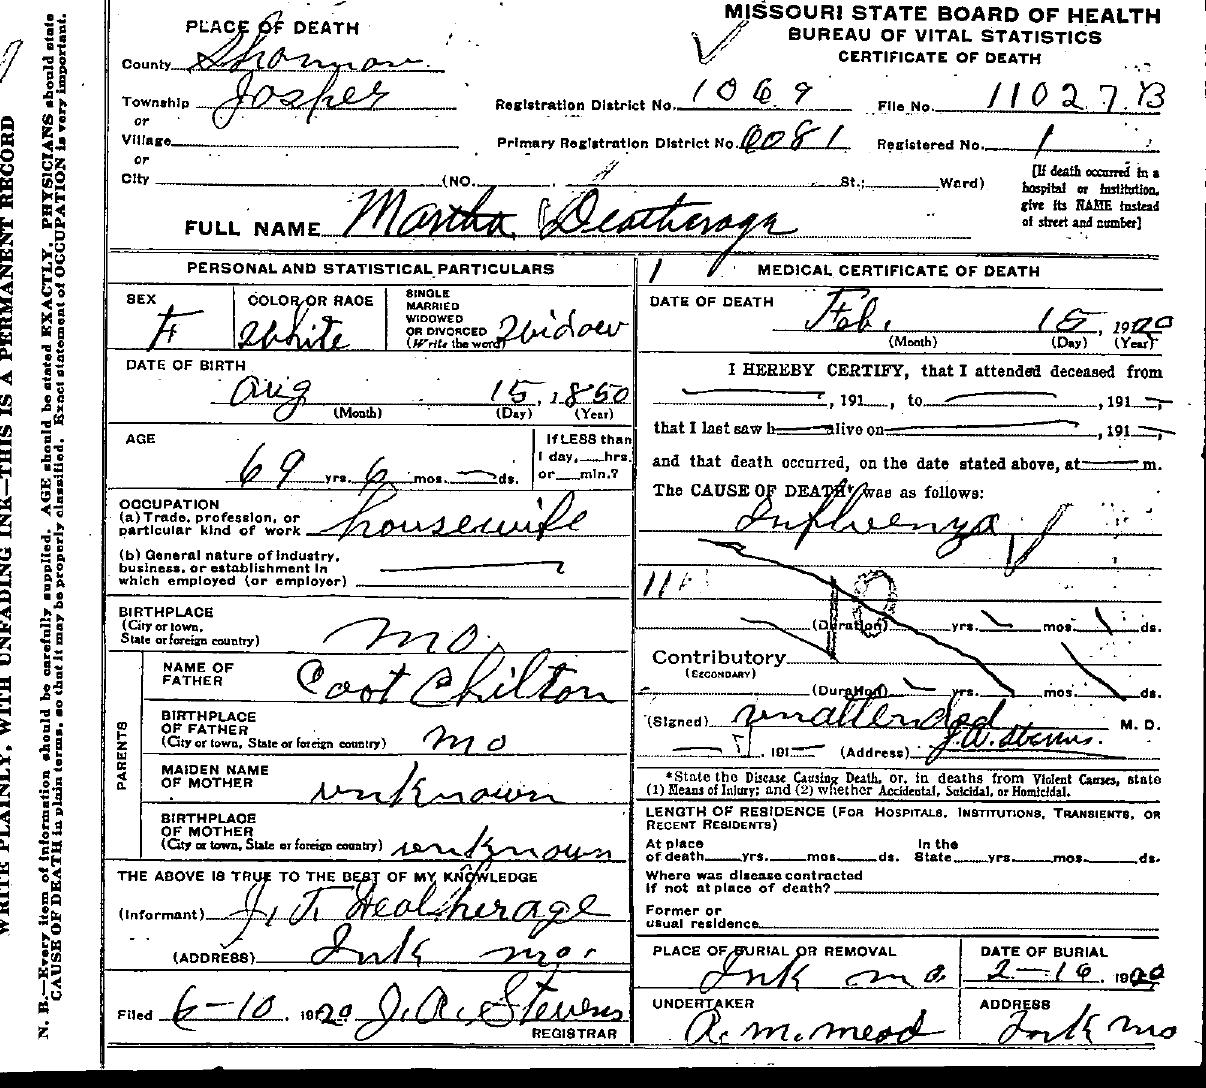 MISSOURI STATE BOARD OF HEALTH
BUREAU OF VITAL STATISTICS
CERTIFICATE OF DEATH
PLACE OF DEATH
County Shannon
Township Jasper
or
Village
or
City (NO. St.; Ward)
Registration District No. 1069 File No. 11027 B
Primary Registration District No. 6081 Registered No. 1
[If death occurred in a
hospital or institution,
give its NAME instead
of street and number]
FULL NAME Martha Deatherage
PERSONAL AND STATISTICAL PARTICULARS
SEX F
COLOR OR RACE White
SINGLE
MARRIED
WIDOWED
OR DIVORCED
(Write the word) Widow
DATE OF BIRTH
Aug 15, 1850
(Month) (Day) (Year)
AGE
69 yrs. 6 mos. ds.
If LESS than
1 day, hrs.
or min.?
OCCUPATION
(a) Trade, profession, or
particular kind of work housewife
(b) General nature of industry,
business, or establishment in
which employed (or employer)
BIRTHPLACE
(City or town,
State or foreign country) Mo.
PARENTS
NAME OF
FATHER Coot Chilton
BIRTHPLACE
OF FATHER
(City or town, State or foreign country) Mo
MAIDEN NAME
OF MOTHER unknown
BIRTHPLACE
OF MOTHER
(City or town, State or foreign country) unknown
THE ABOVE IS TRUE TO THE BEST OF MY KNOWLEDGE
(Informant) J. T. Deatherage
(ADDRESS) Ink Mo.
Filed 6-10, 1920 J. A. Stevens
REGISTRAR
MEDICAL CERTIFICATE OF DEATH
DATE OF DEATH Feb. 15, 1920
(Month) (Day) (Year)
I HEREBY CERTIFY, that I attended deceased from
, 191 , to , 191 ,
that I last saw h alive on , 191 ,
and that death occurred, on the date stated above, at m.
The CAUSE OF DEATH* was as follows:
Influenza
11
10
(Duration) yrs. mos. ds.
Contributory
(SECONDARY)
(Duration) yrs. mos. ds.
(Signed) unattended M. D.
, 191 (Address) J. A. Stevens.
*State the Disease Causing Death, or, in deaths from Violent Causes, state
(1) Means of Injury; and (2) whether Accidental, Suicidal, or Homicidal.
LENGTH OF RESIDENCE (FOR HOSPITALS, INSTITUTIONS, TRANSIENTS, OR
RECENT RESIDENTS)
At place In the
of death yrs. mos. ds. State yrs. mos. ds.
Where was disease contracted
if not at place of death?
Former or
usual residence
PLACE OF BURIAL OR REMOVAL
Ink Mo.
DATE OF BURIAL
2-16 1920
UNDERTAKER
R. M. Mead
ADDRESS
Ink Mo
WRITE PLAINLY, WITH UNFADING INK—THIS IS A PERMANENT RECORD
N. B.—Every item of information should be carefully supplied. AGE should be stated EXACTLY. PHYSICIANS should state
CAUSE OF DEATH in plain terms, so that it may be properly classified. Exact statement of OCCUPATION is very important.